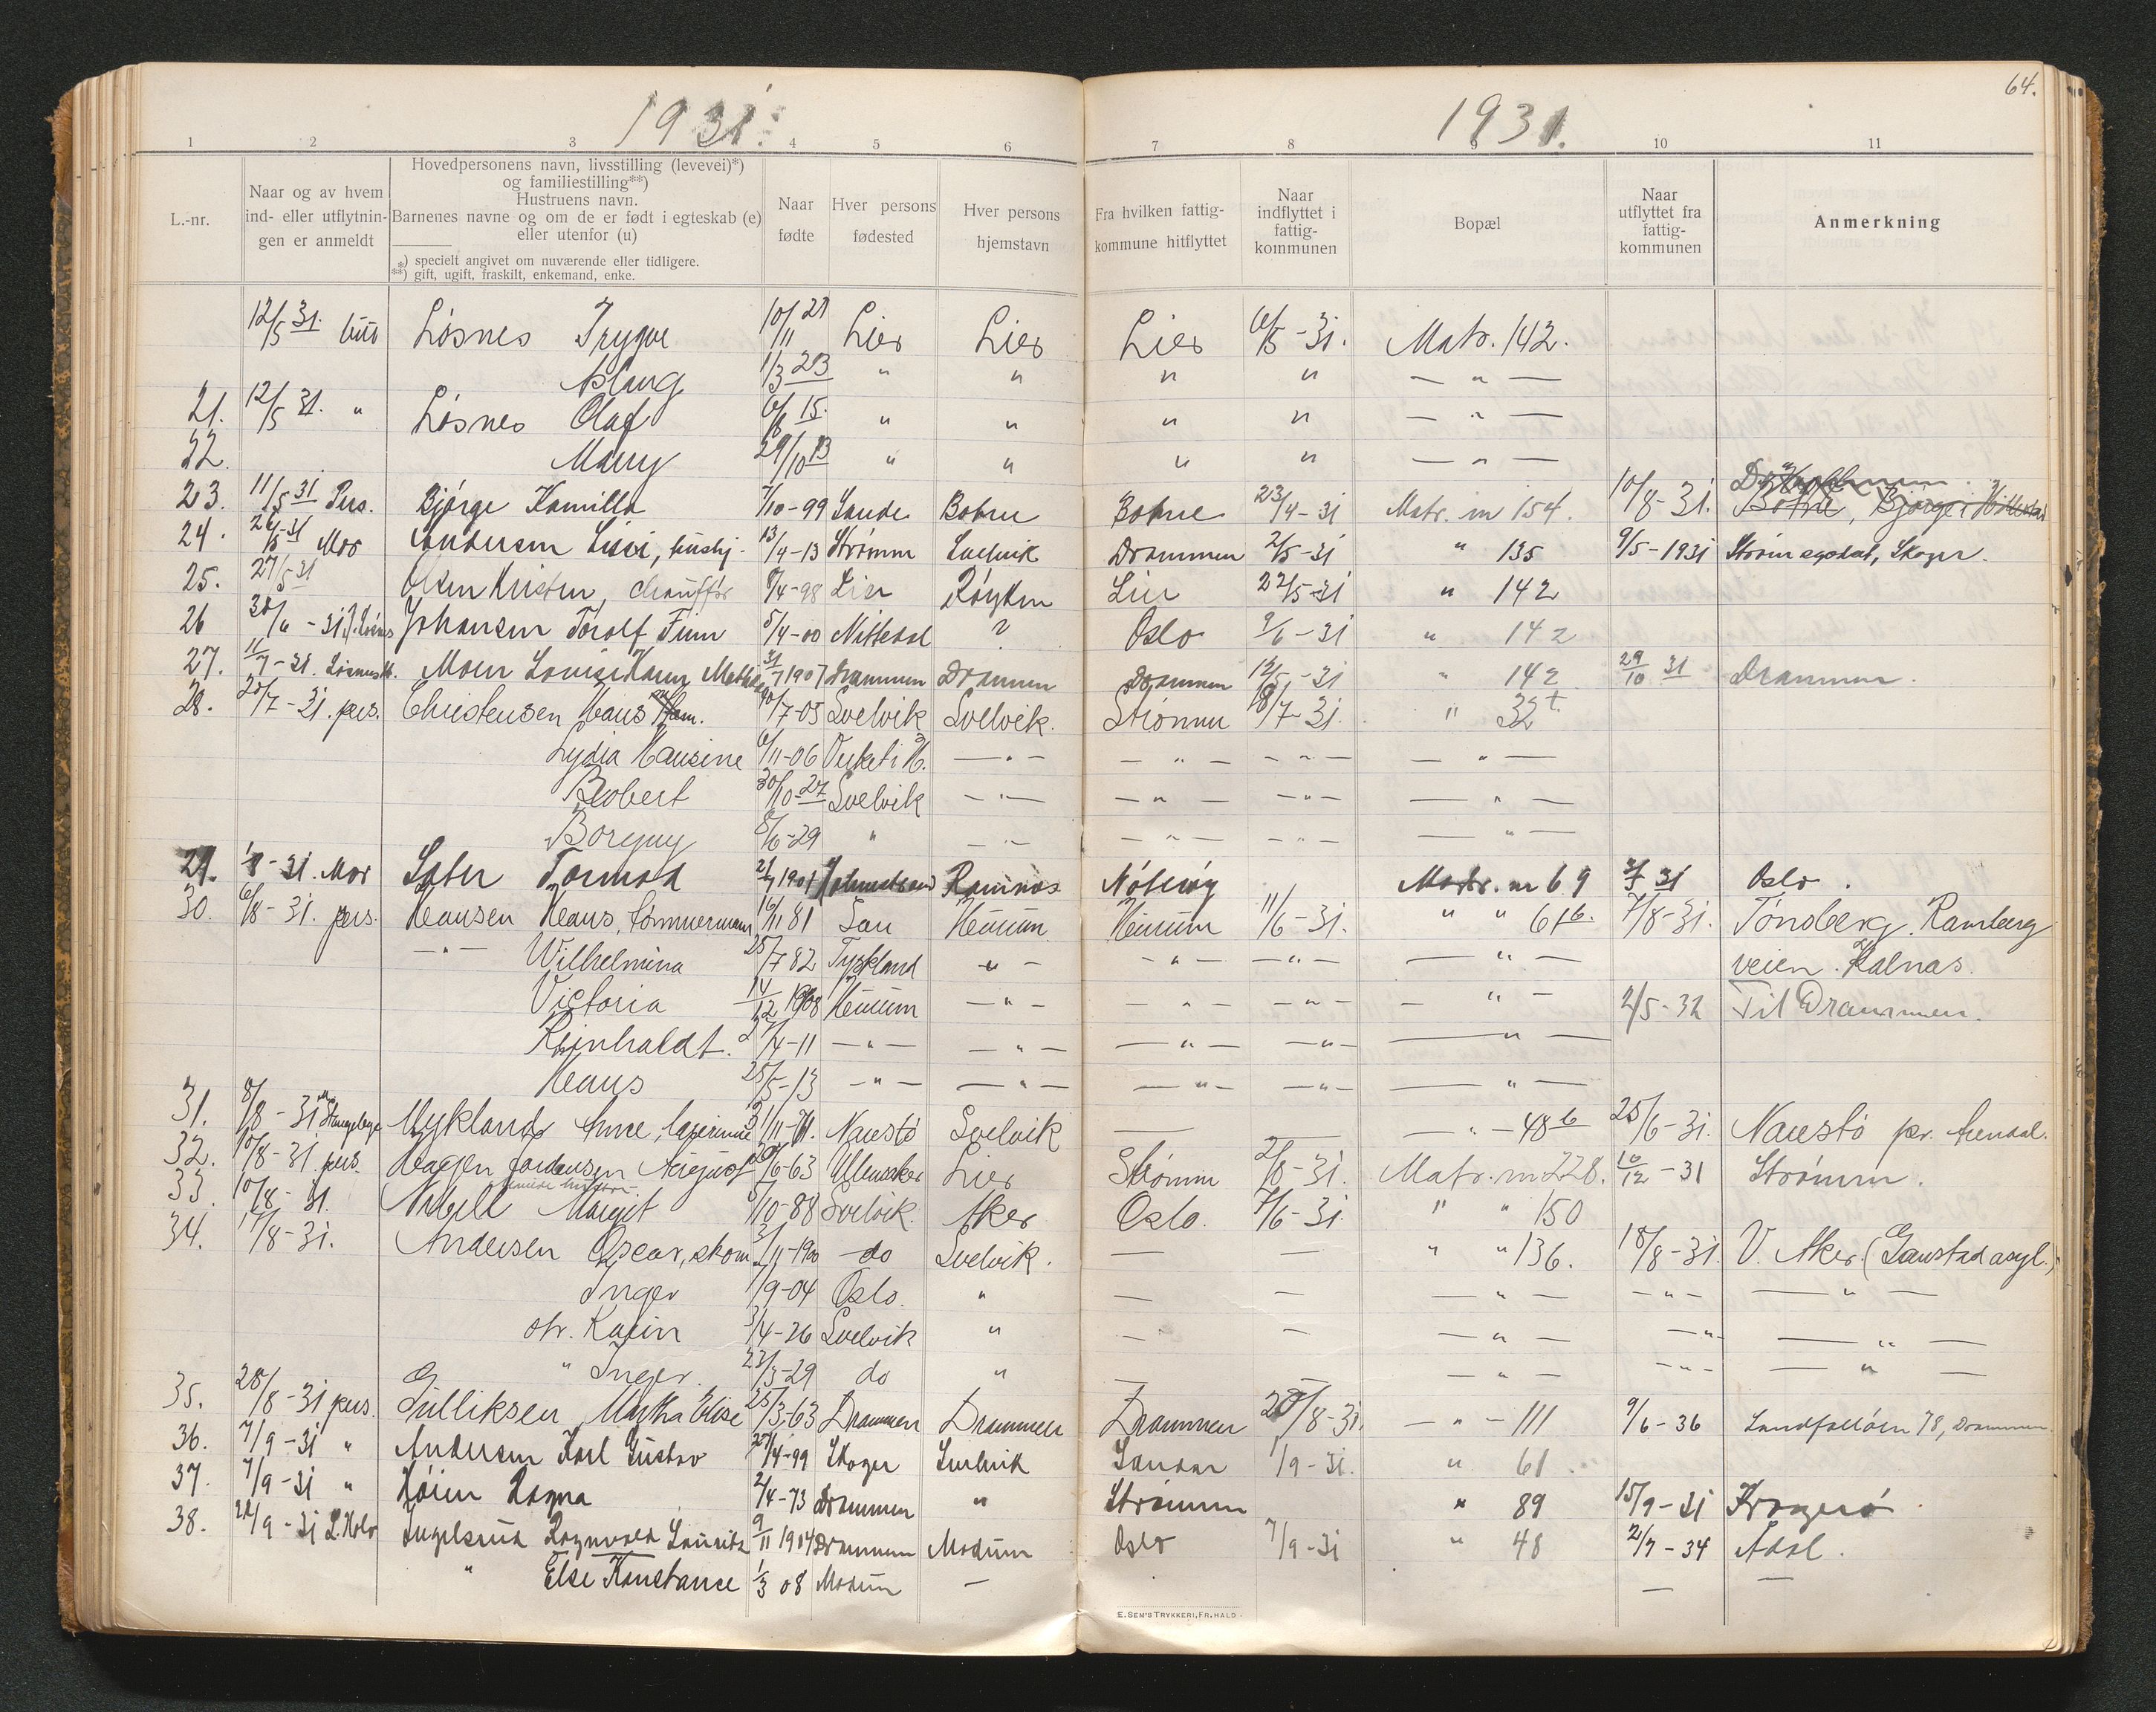 64.
1931. 1931.
1 2 3 4 5 6 7 8 9 10 11
L.-nr.
Naar og av hvem ind- eller utflytnin- gen er anmeldt
Hovedpersonens navn, livsstilling (levevei)*)
og familiestilling**)
Hustruens navn.
Barnenes navne og om de er født i egteskab (e)
eller utenfor (u)
*) specielt angivet om nuværende eller tidligere.
**) gift, ugift, fraskilt, enkemand, enke.
Naar fødte
Hver persons fødested
Hver persons hjemstavn
Fra hvilken fattig- kommune hitflyttet
Naar indflyttet i fattig- kommunen
Bopæl
Naar utflyttet fra fattig- kommunen
Anmerkning
12/5 31. Løsnes Trygve 10/11 21 Lier Lier Lier 6/5-31. Matr. 142.
Aslaug 1/3 23 " " " " — " —
21. 12/5 31. " Løsnes Olaf 6/8 15. " " " " — " —
22. Mary 29/10 13 " " " " — " —
23. 11/5 31 Pers. Bjørge Kamilla 7/10-99 Sande Botne Botne 23/4-31 Matr. nr 154. 10/8-31. Botne, Bjørge, Hillestad
24. 26/5 31 Mor Andersen Lissi, hushj. 13/4-13 Strømm Svelvik Drammen 2/5-31 " 135 9/5-1931 Strøm egodal, Skoger.
25. 27/5 31 Olsen Kristen, chauffør 8/4-98 Lier Røyken Lier 22/5-31 " 142
26 30/6-31 J. Løsnes Johansen Torolf Finn 5/4-00 Nittedal ? Oslo 9/6-31 " 142
27. 11/7-31. Moen Louise Karen Mathilde 31/7 1907 Drammen Drammen Drammen 12/5-31 " 142 29/10 31 Drammen.
28. 20/7-31. pers. Christensen Hans 10/7-03 Svelvik Svelvik. Strømm 18/7-31. " 32
Lydia Hansine 6/11-06 — " — — " — — " — — " —
Robert 30/10-27 Svelvik — " — — " — — " — — " —
Borgny 8/6-29 " — " — — " — — " — — " —
29. 1/8-31. Mor Sater Tormod 21/7 1901 Holmestrand Ramnes Nøtterøy Matr. nr 69 3/7 31 Oslo.
30. 6/8-31. pers. Hansen Hans, tømmermann 16/11 81 Sau Hurum Hurum 11/6-31. " " 61b. 7/8-31. Tønsberg. Ramberg
— " — Wilhelmina 25/7 82 Tyskland — " — — " — — " — — " — veien. Kalnas.
Victoria 14/12 1908 Hurum — " — — " — — " — — " — 2/5-32 Til Drammen.
Reinhaldt. 27/4-11 — " — — " — — " — — " — — " —
Hans 25/5-13 — " — — " — — " — — " — — " —
31. 8/8-31 Mykland Anne, lagerinne 21/11-71. Naustø Svelvik — " — 48b 25/6-31. Naustø pr. Arendal.
32. 10/8-31. pers. Hagen Jordansen August 20/6-63 Ullensaker Lier Strømm 2/8-31. Matr. nr 228. 10/12-31 Strømm.
33 10/8-31. Margit 5/10-88 Svelvik. Aker Oslo. 7/6-31. " " 150
34. 17/8-31. Andersen Oscar, skom. 3/11-1900 do Svelvik. — — " " 136. 18/8-31. V. Aker (Gaustad asyl.)
Inger 1/9-04 Oslo. " — — — " — — " — — " —
dtr. Karin 3/4-26 Svelvik " — — — " — — " — — " —
" Inger. 23/3-29 do " — — — " — — " — — " —
35. 28/8-31 pers. Gulliksen Martha Elise 25/3-63 Drammen Drammen Drammen 20/8-31. — " — 111 9/6-36 Landfalløen 78, Drammen
36. 7/9-31 " Andersen Karl Gustav 27/4-99 Skoger Svelvik Sandar 1/9-31. " 61
37. 7/9-31 " Høien Ragna 2/4-73 Drammen " Strømm " 89 15/9-31 Kragerø
38. 22/9-31 L. Holo Ingelsrud Ragnvald Lauritz 9/11 1904 Drammen Modum Oslo 7/9-31 " 48 2/7-34 Ådal.
" Else Konstanse 1/3 08 Modum — — —
E. SEM'S TRYKKERI, FR.HALD.